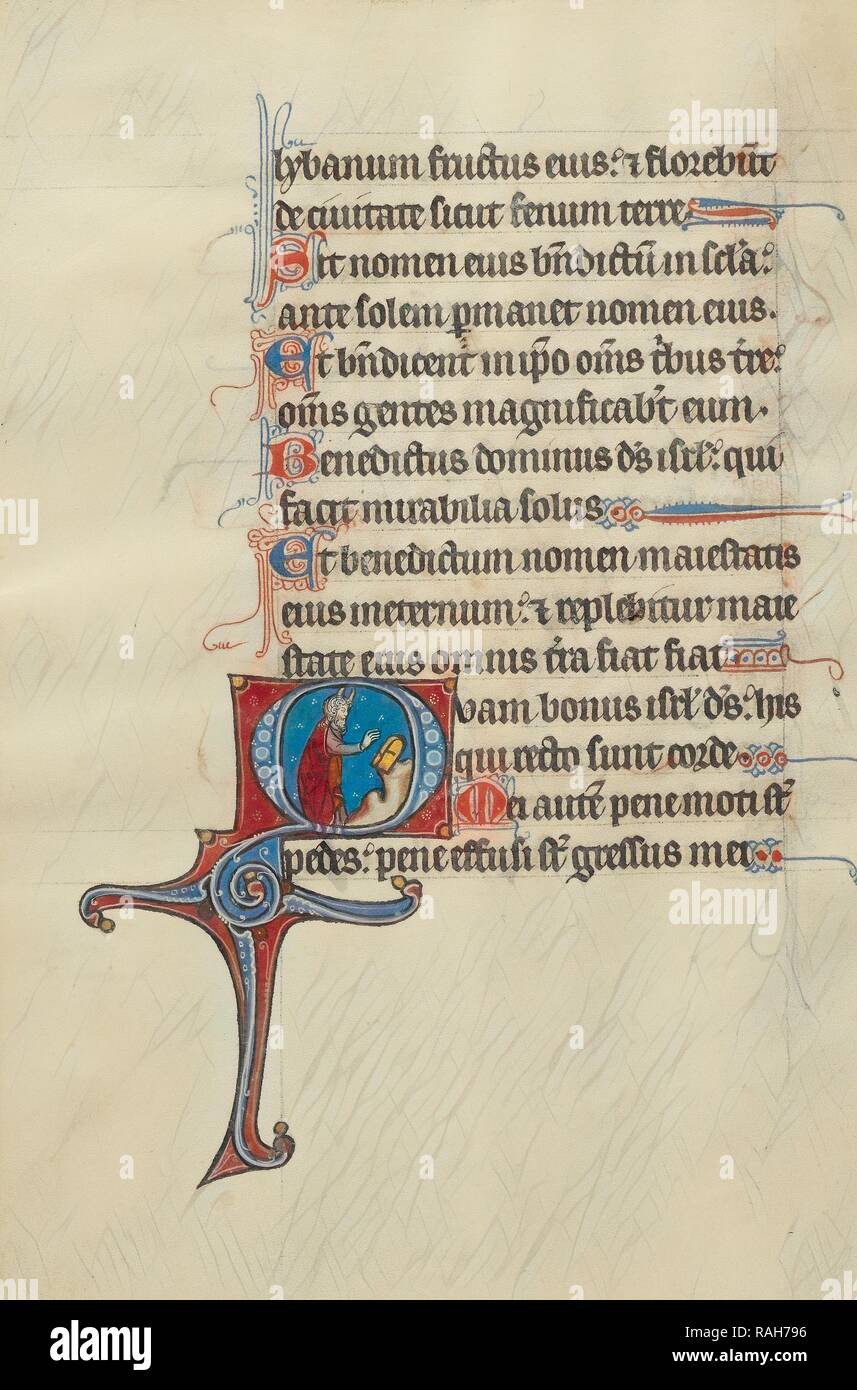 lybanum fructus eius: ⁊ florebūt
de ciuitate sicut fenum terre
Sit nomen eius bñdictū in scl'a:
ante solem ꝑmanet nomen eius.
Et bñdicent̄ in ip̄o om̄s t'bus t're:
om̄s gentes magnificab't eum.
Benedictus dominus d̄s isrl': qui
facit mirabilia solus
Et benedictum nomen maiestatis
eius in eternum: ⁊ replebitur maie
state eius omnis t'ra fiat fiat
Quam bonus isrl' d̄s: his
qui recto sunt corde
Mei autē pene moti st̄
pedes: pene effusi st̄ gressus mei
alamy
a
alamy stock photo
RAH796
www.alamy.com